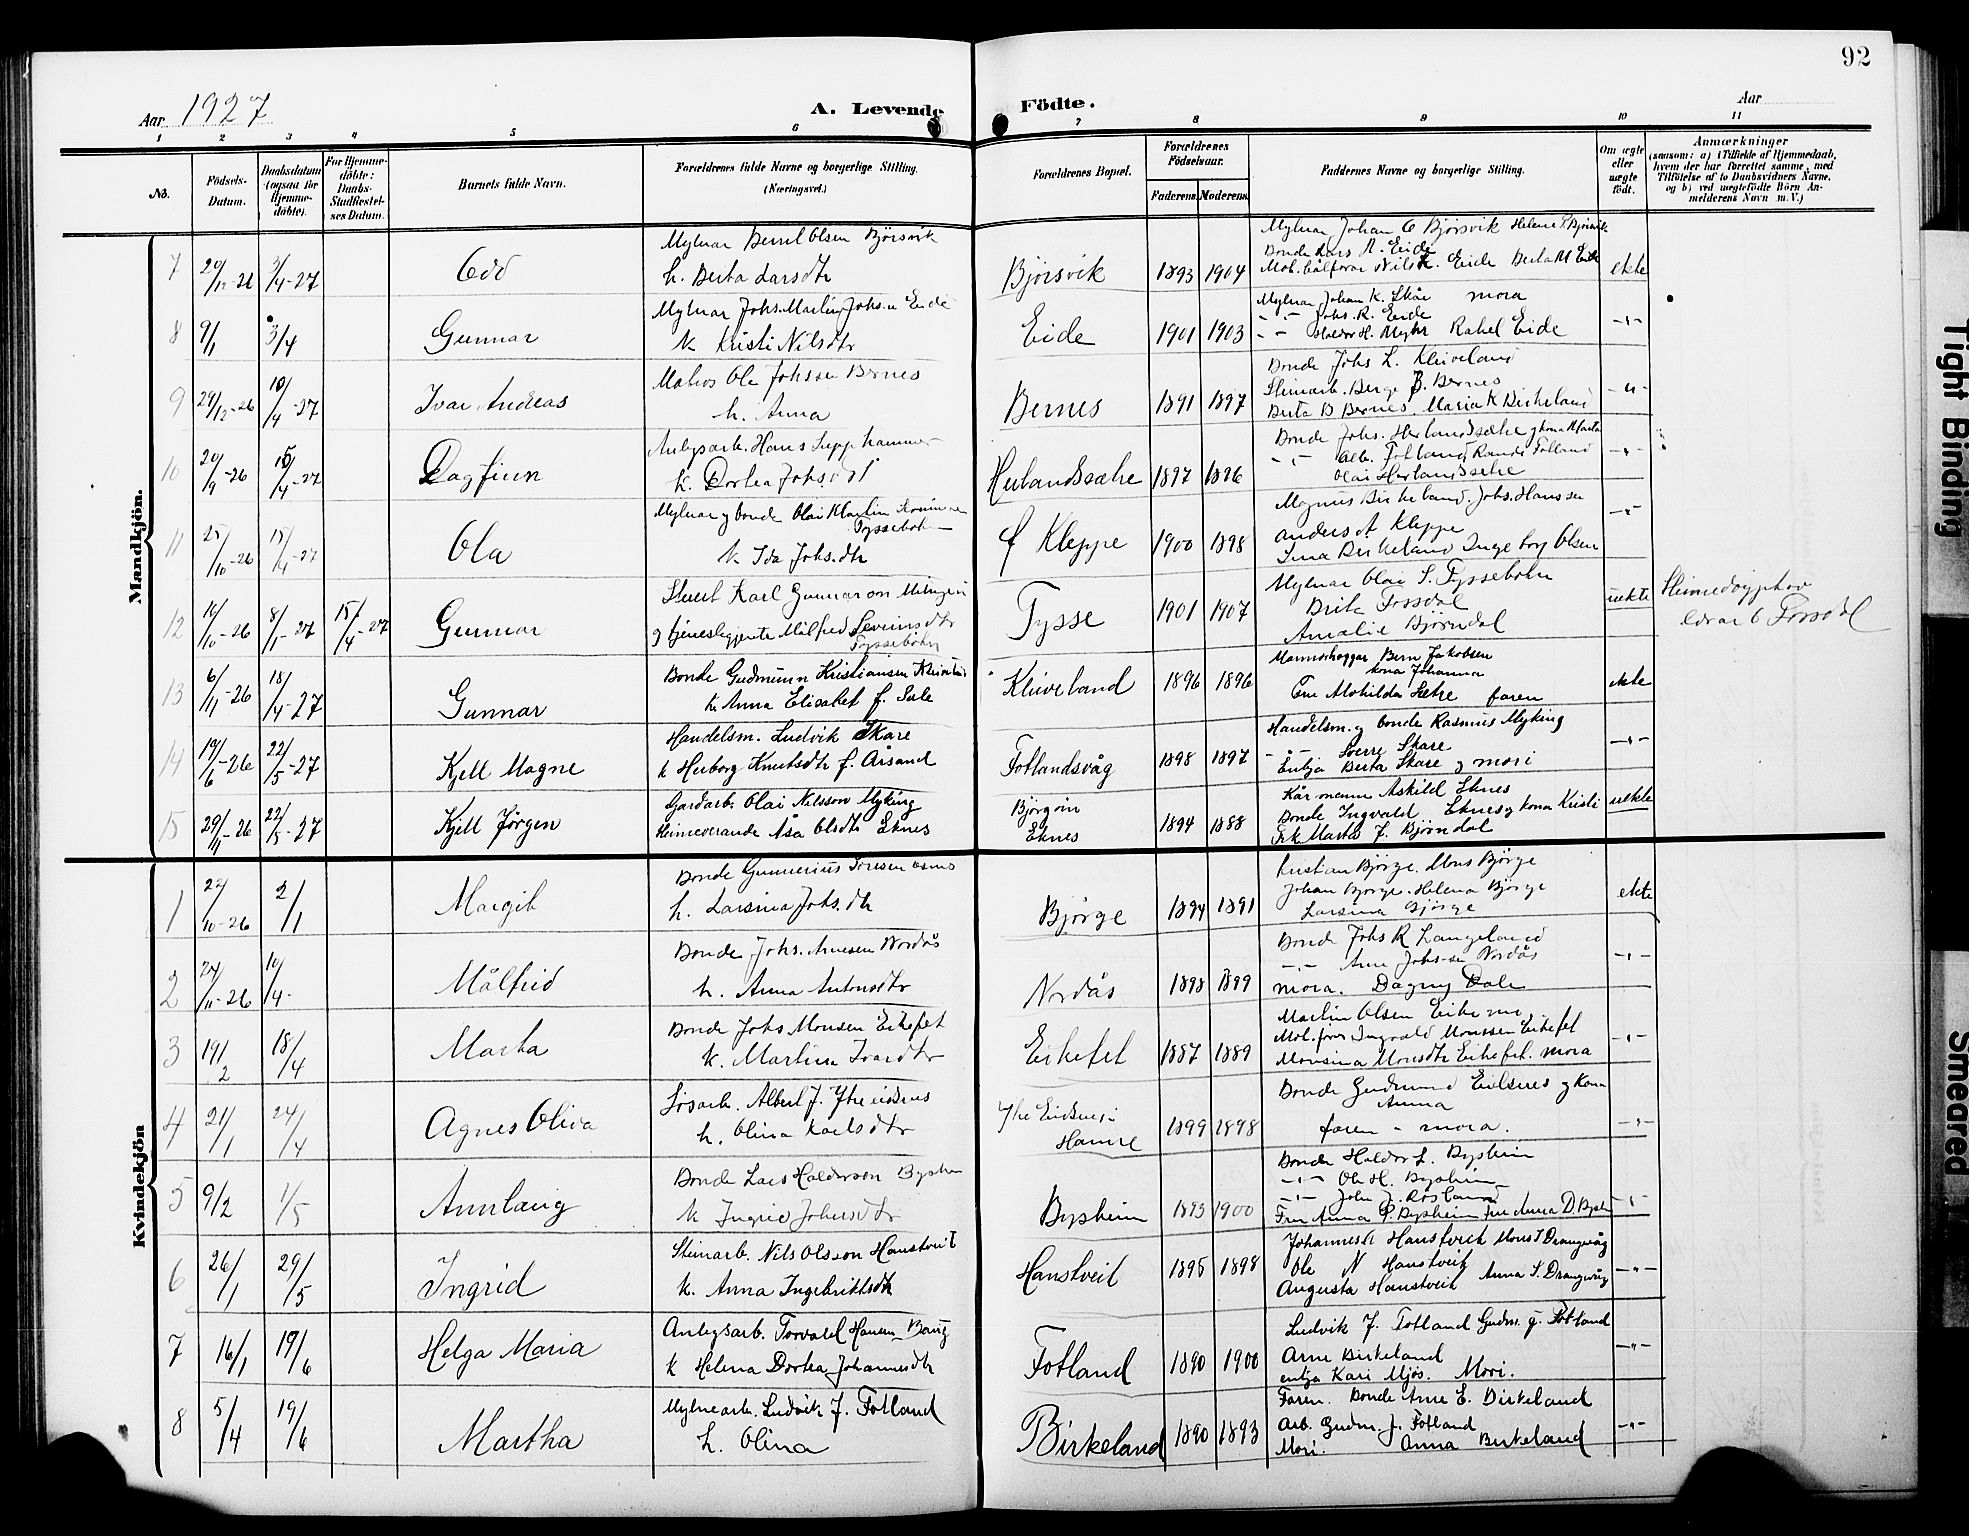 92
Aar 1927
A. Levende Födte.
Aar
1 2 3 4 5 6 7 8 9 10 11
No.
Födsels-Datum.
Daabsdatum (ogsaa for Hjemme-döbte).
For Hjemme-döbte: Daabs-Stadfæstel-ses Datum.
Barnets fulde Navn.
Forældrenes fulde Navne og borgerlige Stilling. (Næringsvei.)
Forældrenes Bopæl.
Forældrenes Födselsaar.
Faderens. Moderens.
Faddernes Navne og borgerlige Stilling.
Om ægte eller uægte födt.
Anmærkninger
(saasom: a) i Tilfælde af Hjemmedaab, hvem der har forrettet samme, med Tilföielse af to Daabsvidners Navne, og b) ved uægtefödte Börn Anmelderens Navn m. V.)
Mandkjön.
7 3/4-27 Odd
Mylnar Olsen Bjørsvik
k. Berta Larsdtr
Bjørsvik 1893 1904
Mylnar Johan O Bjørsvik Helene
Bonde Lars Eide
Nils Eide Berta M Eide
ekte
8 9/1 3/4 Gunnar
Mylnar Johs. Martin Eide
k Kristi Nilsdtr
Eide 1901 1903
Mylnar Johan K. Skår mora
-"- Johs. R. Eide
-"- Haldor H. Myhr Rakel Eide
-"-
9 29/12-26 10/4-27 Ivar Andreas
Ole Johssen Bernes
k. Anna
Bernes 1891 1897
Bonde Johs L. Kleiveland
Steinarb. Berge B. Bernes
Berta B Bernes, Maria K Birkeland
-"-
10 20/9-26 Dagfinn
Anlegsarb. Hans
k. Dortea Johs.dtr
Herlandssætre 1897 1896
Bonde Johs. Herlandssætre og kona Marta
-"- Alb. Fotland, Fotland
Olai Herlandssætre
-"-
11 25/10-26 15/4-27 Ola
Mylnar og bonde Olai Martin
Tyssebotn
k. Ida Johs.dtr
f Kleppe 1900 1898
Magnus Birkeland. Johs. Hanssen
Anders A Kleppe
Birkeland Ingeborg Olsen
-"-
12 10/10-26 8/1-27 15/4-27 Gunnar
Karl Gunnarson
og tjenestegjente Målfrid Severinsdtr
Tyssebotn
Tysse 1901 1907
Mylnar Olai S. Tyssebotn
Brita Fossdal
Amalie Bjørndal
uekte
Heimedøypt av
O Fossdal
13 6/11-26 18/4-27 Gunnar
Bonde Gudmunn Kristiansen Kleiveland
k. Anna Elisabet f. Sule
Kleiveland 1896 1896
Bern Jakobsen
kona Johanna
Matilda Sætre faren
ekte
14 19/6-26 22/5-27 Kjell Magne
Handelsm. Ludvik Skare
k Herborg Knutsdtr f. Årsand
Fotlandsvåg 1898 1897
Handelsm. og bonde Rasmus Myking
-"- Sverre Skare
Enkja Berta Skare og mori
-"-
15 29/11-26 22/5-27 Kjell Jørgen
Gardarb. Olai Nilsson Myking
Heimeverande Åsa Olsdtr Eknes
Eknes 1894 1888
Kårmann Askild Eknes
Bonde Ingvald Eknes og kona Kristi
Frk Marta J. Bjørndal
uekte
Kvindekjön
1 22/10-26 2/1 Margit
Bonde Gunnerius
k. Larsina Johs.dtr
Bjørge 1894 1891
Kristian Bjørge. Mons Bjørge
Johan Bjørge. Helena Bjørge
Larsina Bjørge
ekte
2 10/4 Målfrid
Bonde Johs. Arnesen Nordås
k. Anna Antonsdtr
Nordås 1898 1899
Bonde Johs R Langeland
-"- Arne Johs-sen Nordås
mora. Dagny Dale
-"-
3 19/2 18/4 Marta
Bonde Johs Monsen Eikefet
k. Martha Ivarsdtr
Eikefet 1887 1889
Martin Olsen
Ingvald Monssen Eikefet
Monsina Monsdtr Eikefet. mora
-"-
4 21/1 24/4 Agnes Oliva
Løsarb. Albert J. Ytre Eidsnes
k. Olina Karlsdtr
Ytre Eidsnes i
Hamre 1899 1898
Bonde Gudmund Eidsnes og kona
Anna
faren - mora.
-"-
5 9/2 1/5 Annlaug
Bonde Lars Haldorsen Bysheim
k Ingrid Johansdtr
Bysheim 1893 1900
Bonde Haldor L. Bysheim
-"- Ole H. Bysheim
-"- John J. Røsland
Fru Anna P. Bysheim Fru Anna D Bysh
-"-
6 26/1 29/5 Ingrid
Steinarb. Nils Olsson Hanstveit
k. Anna Ingebriktsdtr
Hanstveit 1895 1898
Johannes Hanstveit Mons I Drangevåg
Ole N Hanstveit
Augusta Hanstveit Anna S. Drangevåg
-"-
7 16/1 19/6 Helga Maria
Anlegsarb. Torvald Hansen Baug
k Helena Dortea Johannesdtr
Fotland 1890 1900
Ludvik J. Fotland Gudm. J. Fotland
Arne Birkeland
enkja Kari Mjøs. Mori.
-"-
8 5/4 19/6 Martha
Mylnearb. Ludvik J. Fotland
k. Olina
Birkeland 1890 1893
Faren. Bonde Arne E. Birkeland
Arb. Gudm. J. Fotland
Mori. Anna Birkeland
-"-
Tight Binding
Smeared